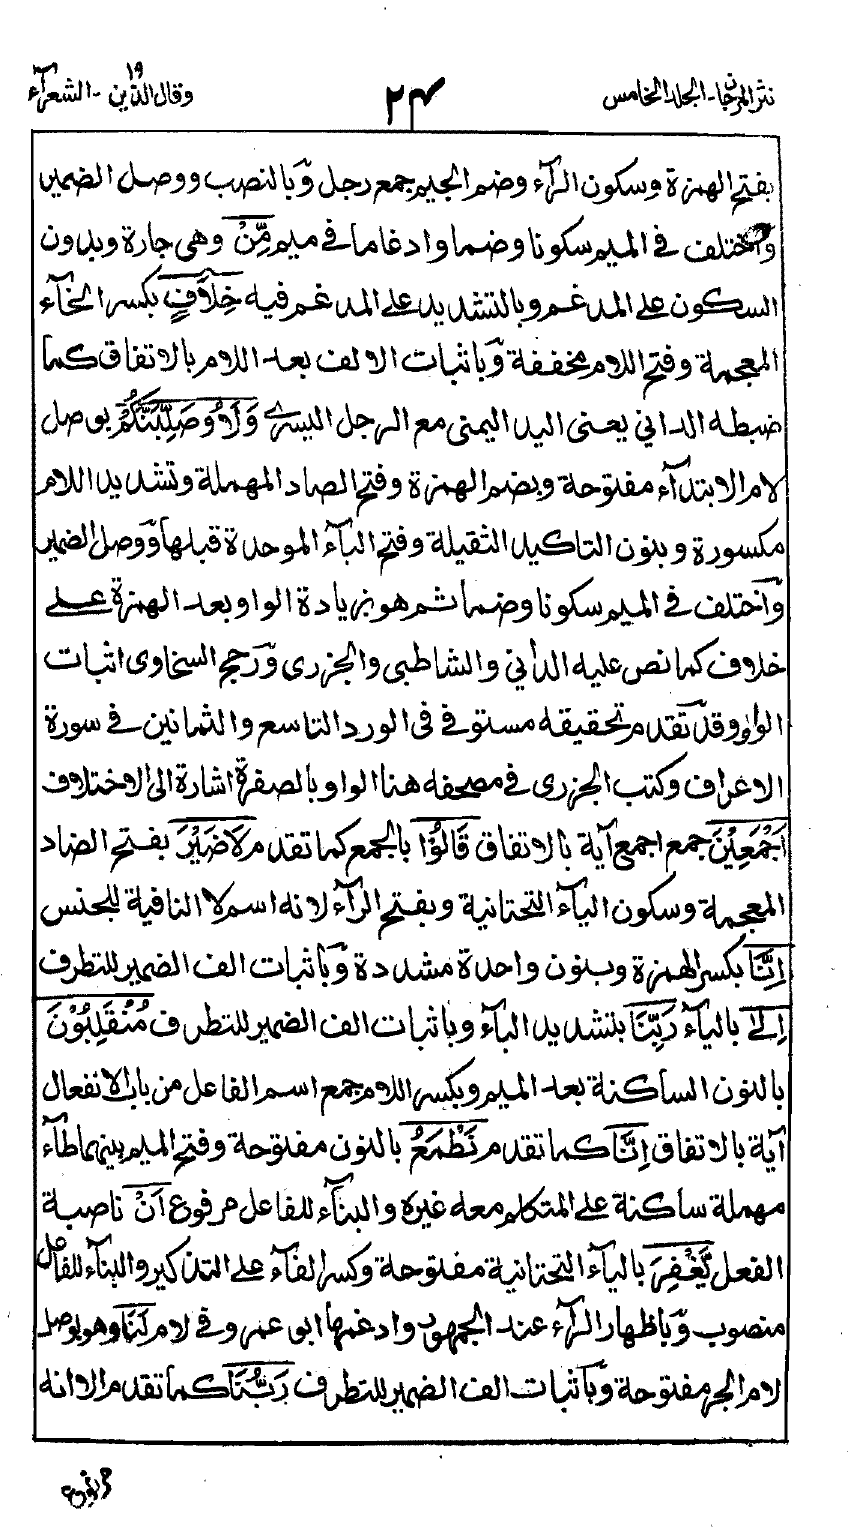 نثر المرجان - الجلد الخامس
٢٤
وقال الذين ١٩ - الشعرآء
بفتح الهمزة وسكون الرآء وضم الجيم جمع رجل وبالنصب ووصل الضمير
واختلف في الميم سكونا وضما وادغاما في ميم مِّنْ وهي جارة وبدون
السكون على المدغم وبالتشديد على المدغم فيه خِلَافٍ بكسر الخآء
المعجمة وفتح اللام مخففة وباثبات الالف بعد اللام بالاتفاق كما
ضبطه الداني يعني اليد اليمنى مع الرجل اليسرى وَلَاُوصَلِّبَنَّكُمْ بوصل
لام الابتدآء مفتوحة وبضم الهمزة وفتح الصاد المهملة وتشديد اللام
مكسورة وبنون التاكيد الثقيلة وفتح البآء الموحدة قبلها ووصل الضمير
واختلف في الميم سكونا وضما ثم هو بزيادة الواو بعد الهمزة على
خلاف كما نص عليه الداني والشاطبي والجزري ورجح السخاوى اثبات
الواو وقد تقدم تحقيقه مستوفى في الورد التاسع والثمانين في سورة
الاعراف وكتب الجزرى في مصحفه هنا الواو بالصفرة اشارة الى الاختلاف
اَجْمَعِيْنَ جمع اجمع آية بالاتفاق قَالُوْا بالجمع كما تقدم لَاضَيْرَ بفتح الضاد
المعجمة وسكون اليآء التحتانية وبفتح الرآء لانه اسم لا النافية للجنس
اِنَّا بكسر الهمزة وبنون واحدة مشددة وباثبات الف الضمير للتطرف
اِلٰى باليآء رَبِّنَا بتشديد البآء وباثبات الف الضمير للتطرف مُنْقَلِبُوْنَ
بالنون الساكنة بعد الميم وبكسر اللام جمع اسم الفاعل من باب الانفعال
آية بالاتفاق اِنَّا كما تقدم نَطْمَعُ بالنون مفتوحة وفتح الميم بينهما طآء
مهملة ساكنة على المتكلم معه غيره والبنآء للفاعل مرفوع اَنْ ناصبة
الفعل يَّغْفِرَ باليآء التحتانية مفتوحة وكسر الفآء على التذكير والبنآء للفاعل
منصوب وباظهار الرآء عند الجمهور وادغمها ابو عمرو في لام لَنَا وهو بوصل
لام الجر مفتوحة وباثبات الف الضمير للتطرف رَبُّنَا كما تقدم الا انه
مرفوع